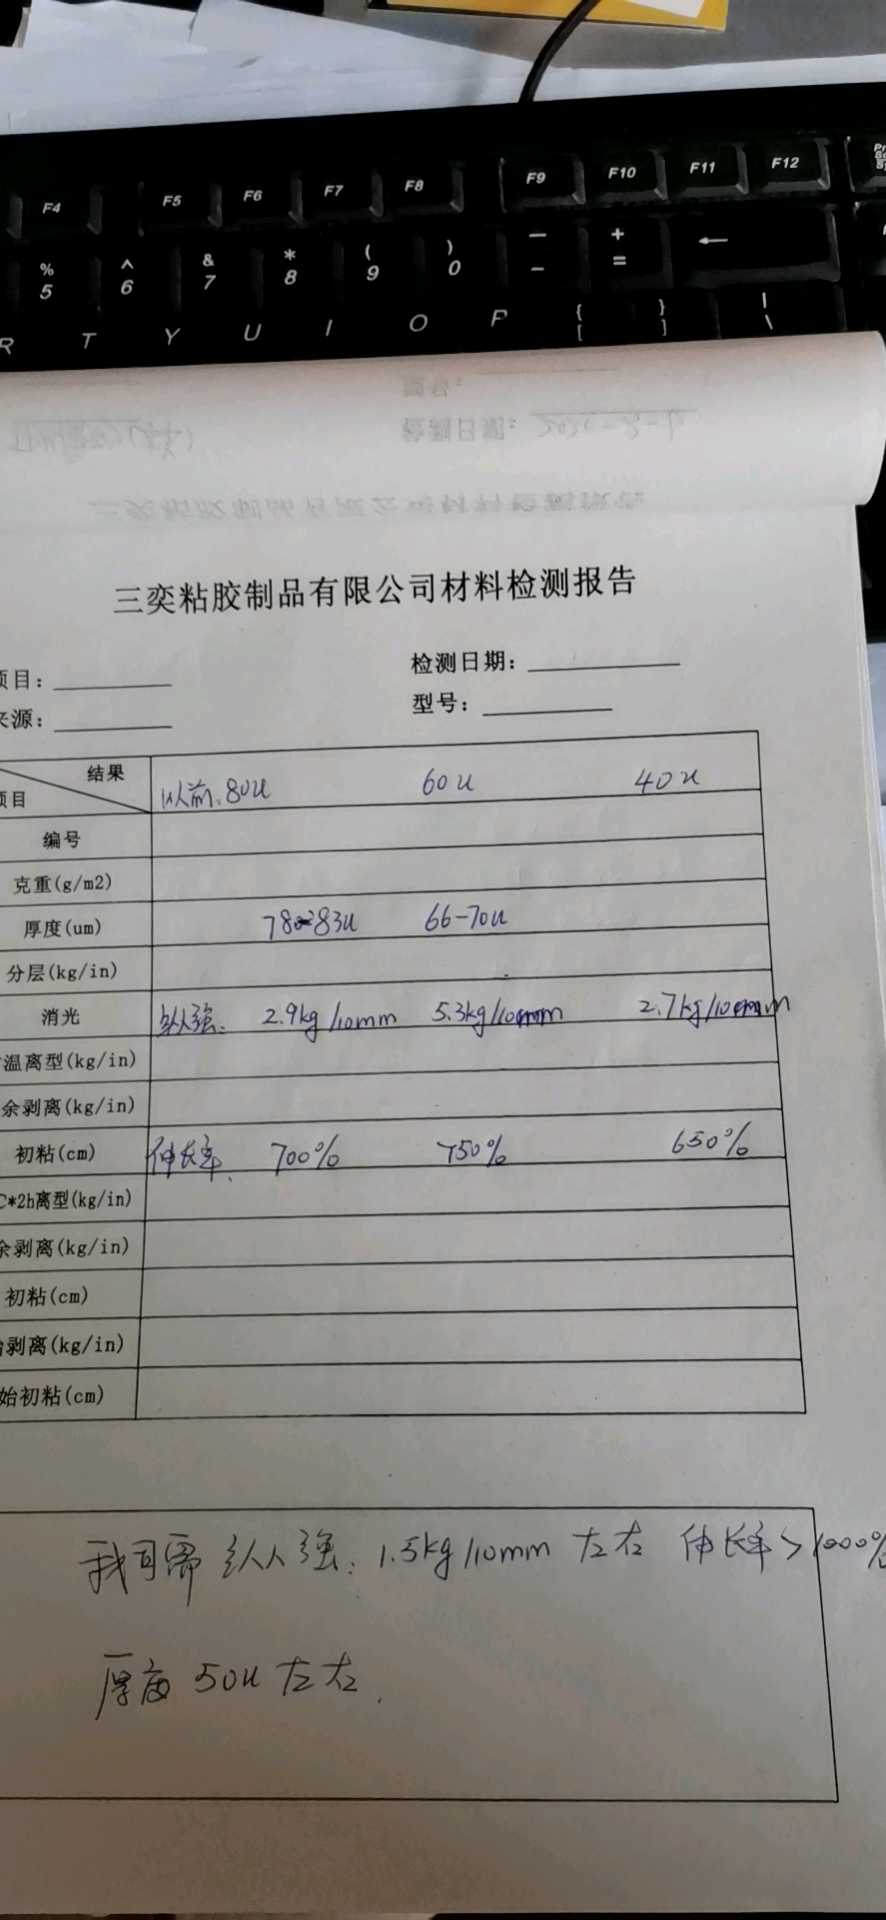 F4 F5 F6 F7 F8 F9 F10 F11 F12
% ^ & * ( ) — +
5 6 7 8 9 0 - = ←
R T Y U I O P { [ } ] | \
检测日期：
三奕粘胶制品有限公司材料检测报告
项目： 检测日期：
来源： 型号：
结果
项目 以前.80u 60u 40u
编号
克重(g/m2)
厚度(um) 78~83u 66-70u
分层(kg/in)
消光 纵强: 2.9kg/10mm 5.3kg/10mm 2.7kg/10mm
温离型(kg/in)
余剥离(kg/in)
初粘(cm) 伸长率. 700% 750% 650%
C*2h离型(kg/in)
余剥离(kg/in)
初粘(cm)
剥离(kg/in)
始初粘(cm)
我司需 纵强: 1.5kg/10mm 左右 伸长率>1000%
厚度 50u 左右.